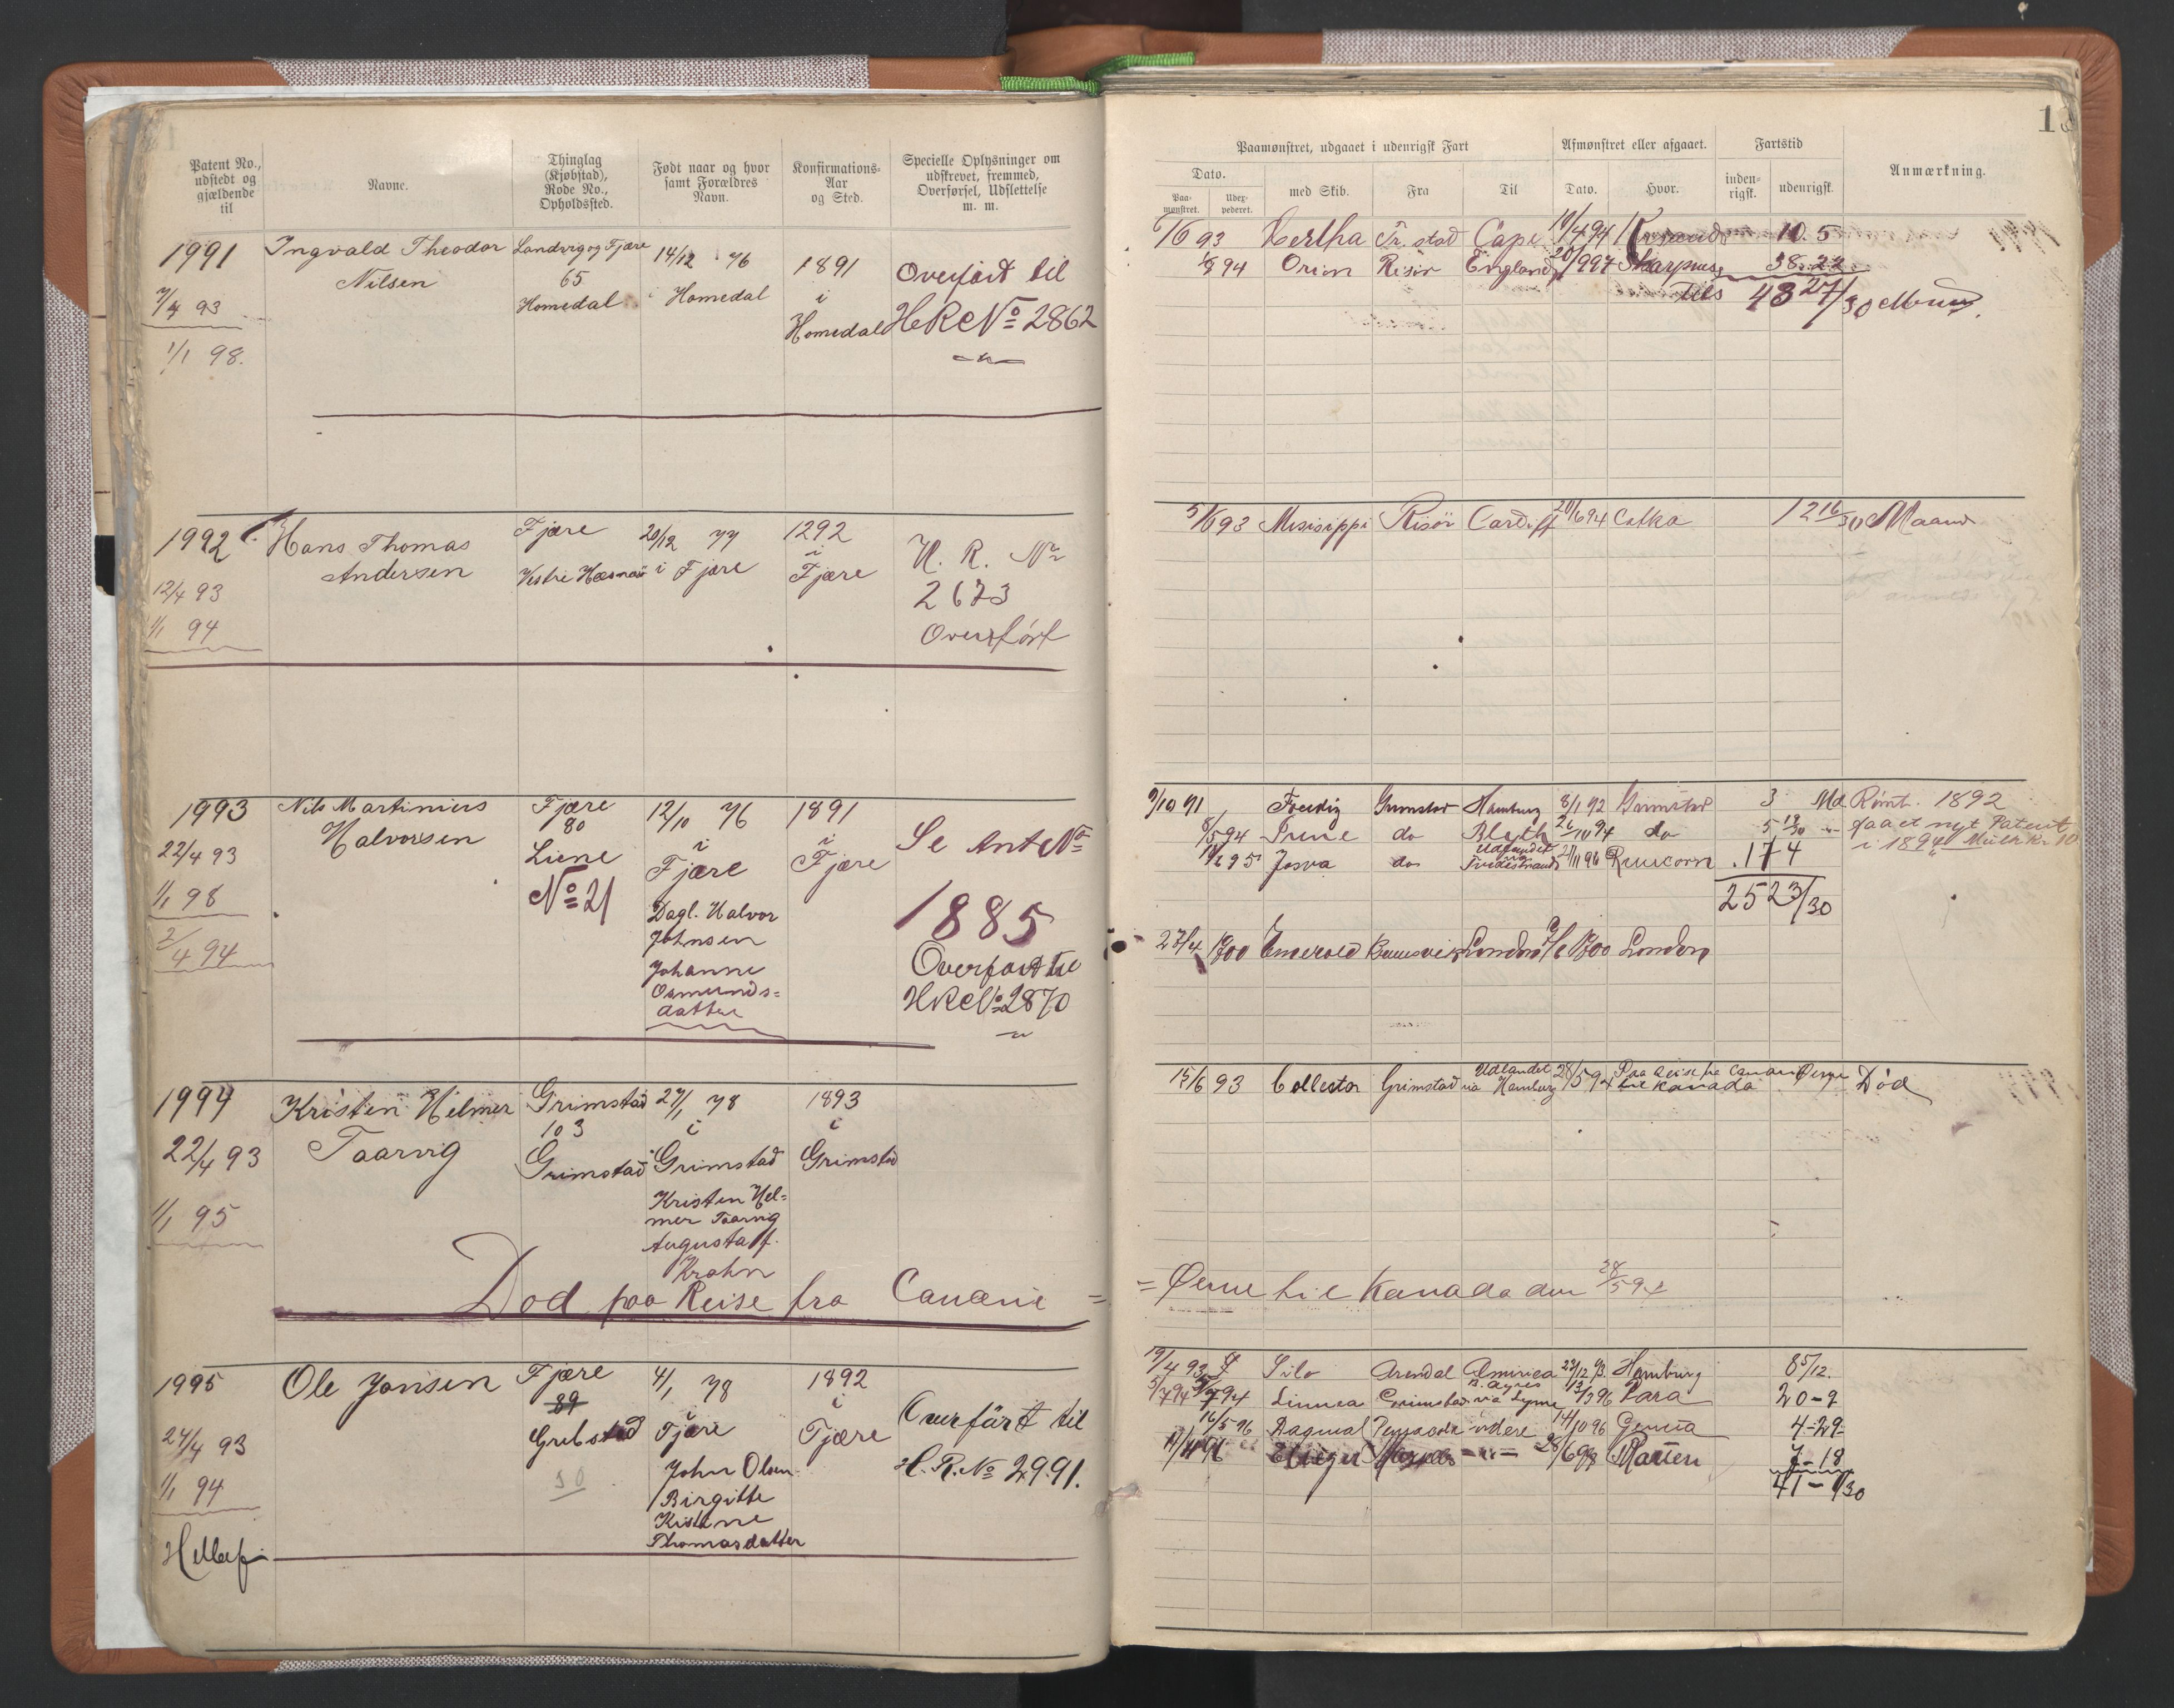 Patent No., udstedt og gjældende til
Navne.
Thinglag (Kjøbstad), Rode No., Opholdssted.
Født naar og hvor samt Forældres Navn.
Konfirmations-Aar og Sted.
Specielle Oplysninger om udskrevet, fremmed, Overførsel, Udslettelse m. m.
1991
7/4 93
1/1 98.
Ingvald Theodor
Nilsen
Landvig og Fjære
65
Homedal
14/12 76
i Homedal
1891
i
Homedal
Overført til
HR No 2862
1992
12/4 93
1/1 94
Hans Thomas
Andersen
Fjære
Vestre Hæsnæs
20/12 77
i Fjære
1292
i
Fjære
H. R. Nr
2673
Overført
1993
22/4 93
1/1 98
2/4 94
Nils Martinius
Halvorsen
Fjære
80
Liene
No 21
12/10 76
i
Fjære
Dagl. Halvor
Johnsen
Johanne
Osmunds-
datter
1891
i
Fjære
Se Ant No
1885
Overført til
HR No 2870
1994
22/4 93
1/1 95
Kristen Helmer
Taarvig
Grimstad
103
Grimstad
27/1 78
i
Grimstad
Kristen Hel-
mer Taarvig
Augusta f.
Krohn
1893
i
Grimstad
Død paa Reise fra Canarie =
1995
24/4 93
1/1 94
Ole Jonsen
Fjære
89
Grebstad
10
4/1 78
i
Fjære
John Olsen
Birgitte
Kistine
Thomasdatter
1892
i
Fjære
Overført til
H. R. No 2991.
13
Paamønstret, udgaaet i udenrigsk Fart
Afmønstret eller afgaaet.
Fartstid
Anmærkning.
Dato.
Paa-mønstret.
Udex-pederet.
med Skib.
Fra
Til
Dato.
Hvor.
inden-rigsk.
udenrigsk.
6/6 93 Hertha Fr. stad Cape 10/4 94 10. 5
94 Orion Risør England 20/9 97 38. 22
Tils 48 27/30 Maan
5/6 93 Missisippi Risør Cardiff 20/6 94 12 16/30 Maaned
9/10 91 Grimstad Hamburg 8/1 92 Grimstad 3 Md Rømt. 1892
8/5 94 do Blyth 26/10 94 do 5 19/30 faaet nyt Patent
i 1894 Mulkt Kr 10
95 Josva do Udlandet 96 Runcorn 17 4
25 23/30
27/4 1900 Emerald Brunsvik London 1900 London
15/6 93 Collector Grimstad Udlandet via Hamburg 28/5 94 Paa Reise fra Canari Øerne til Kanada Død
= Øerne til Kanada den 28/5 94
19/4 93 Silo Arendal Amerika 23/12 93 Hamburg 8 5/12.
5/7 94 Linnea Grimstad B. Ayres via Lyme 13/3 96 Para 20-9
16/5 96 Dagmar Pensacola videre 14/10 96 Genua 4-29
17/11 96 7-18
41-9/30